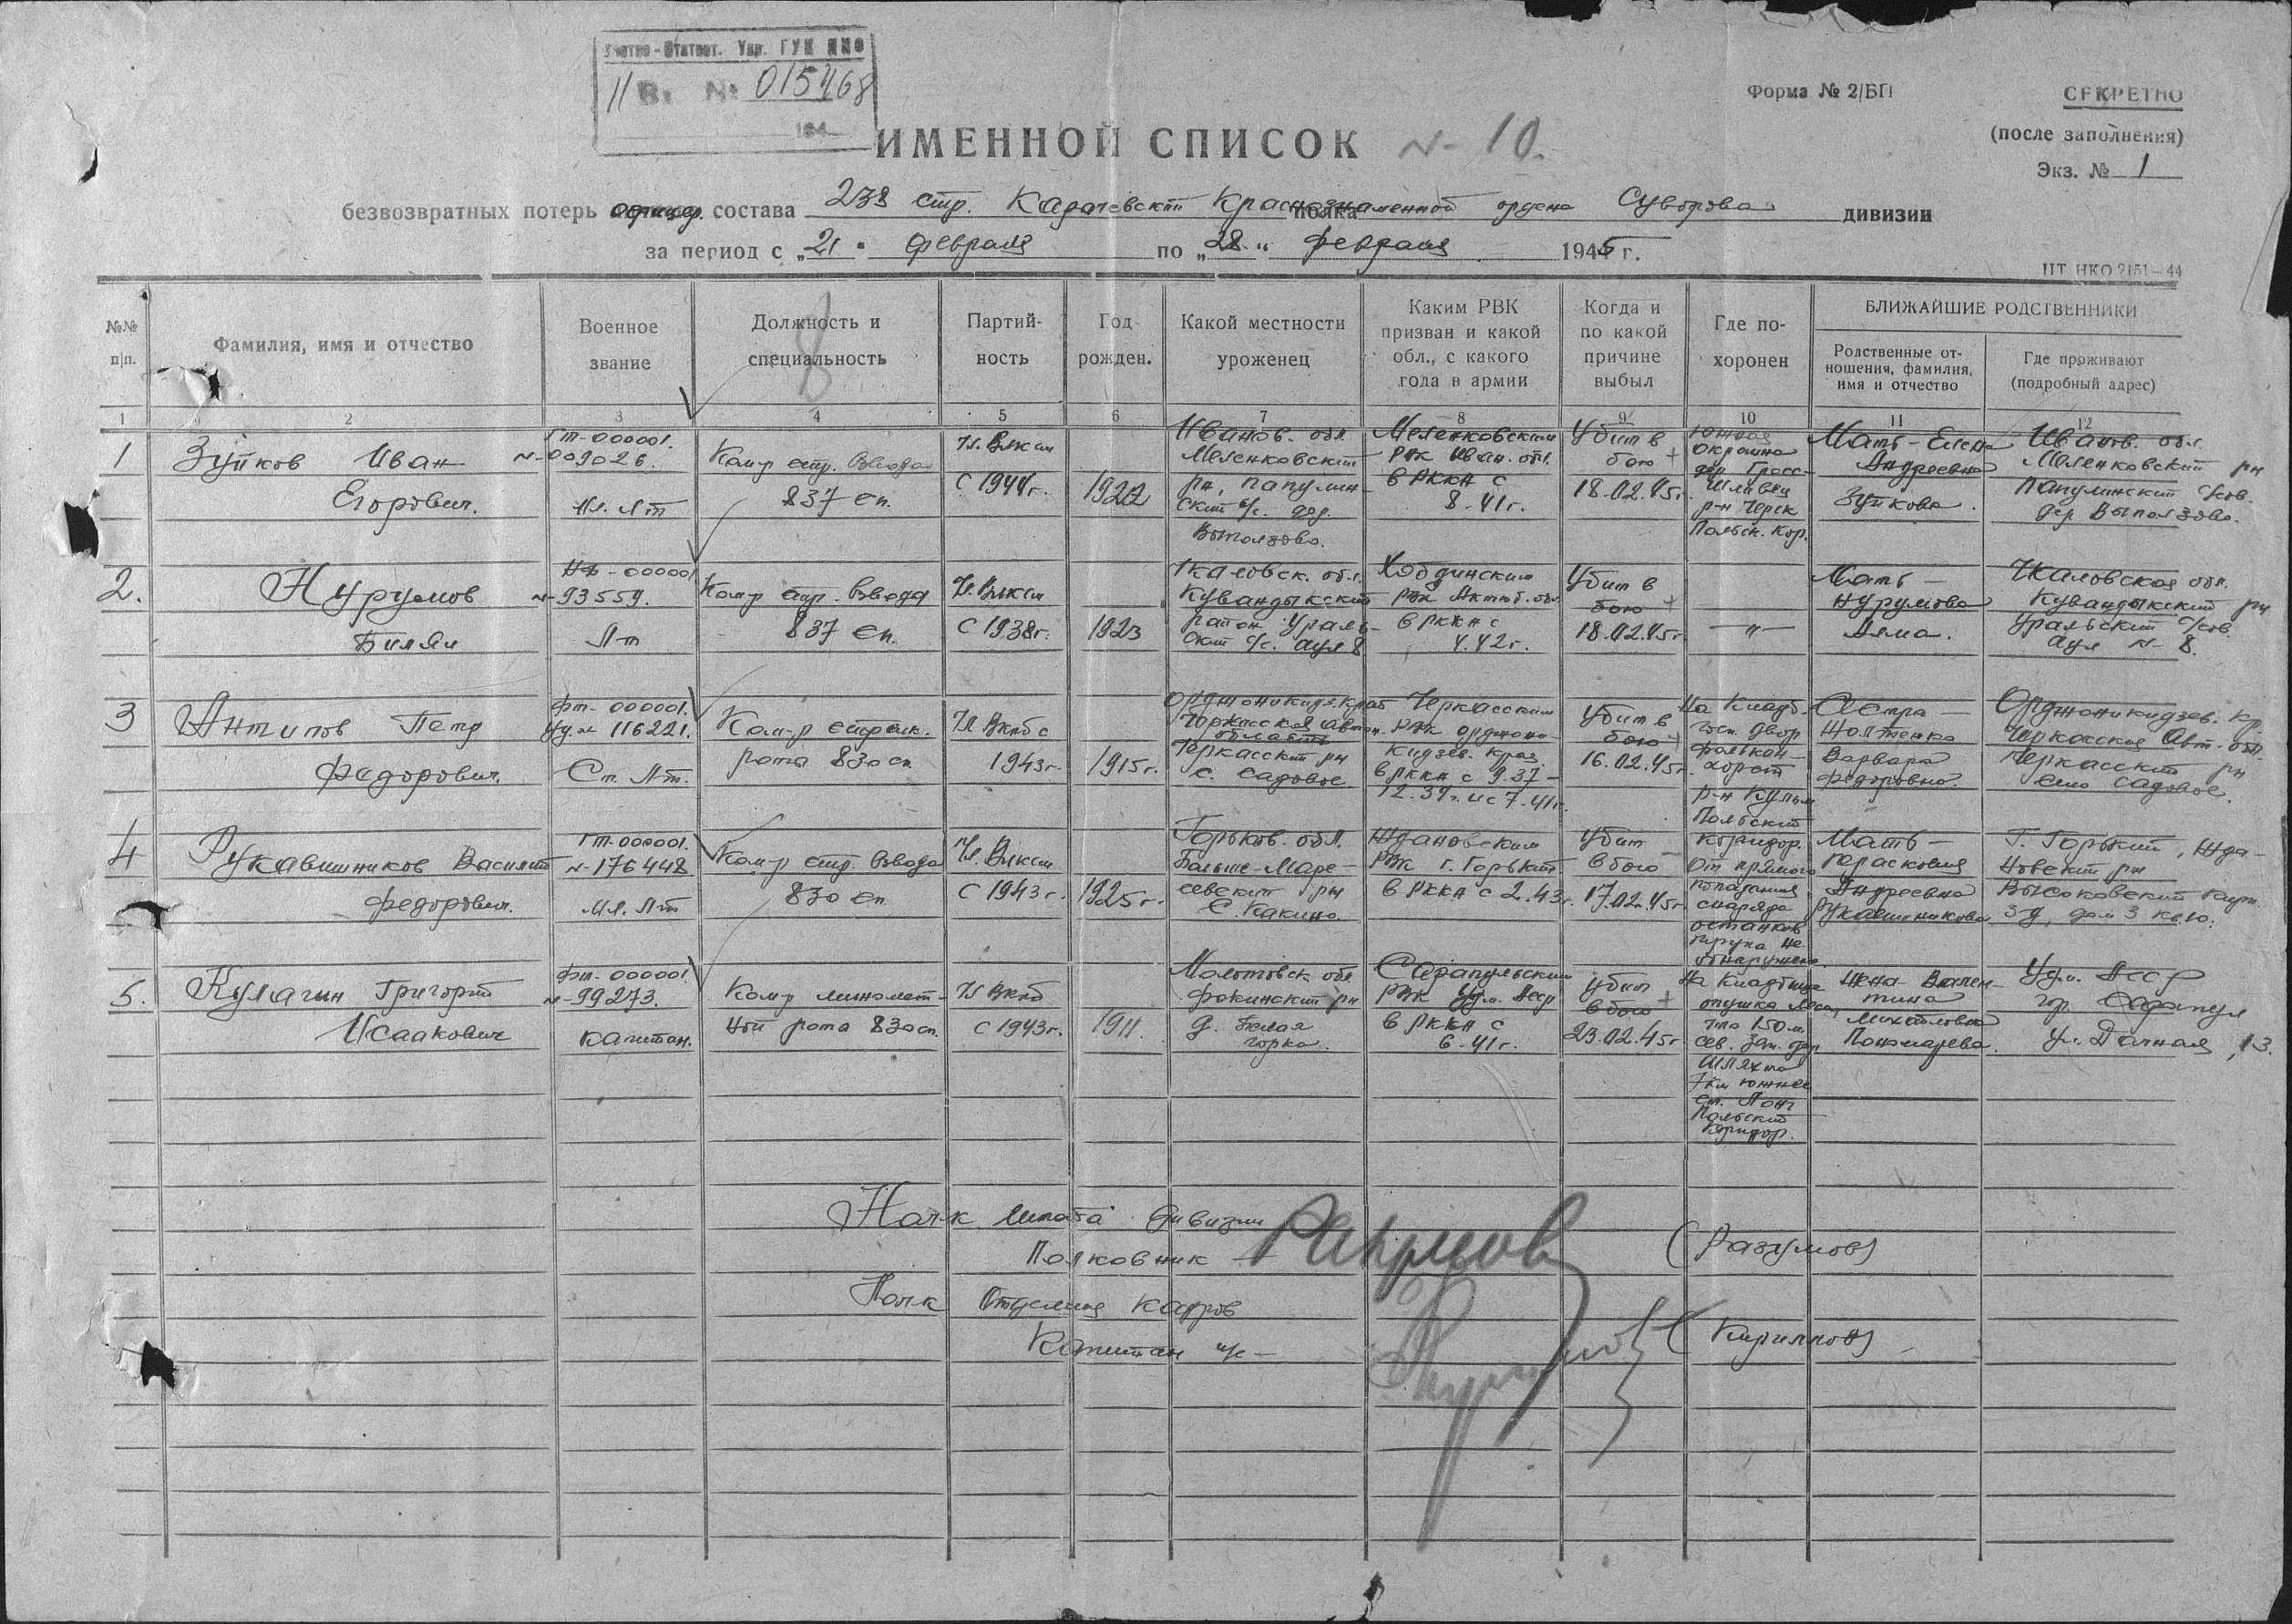 Учетно-Статист. Упр. ГУК НКО
11 В. № 015468
194
Форма № 2/БП
СЕКРЕТНО
(после заполнения)
Экз. № 1
ИМЕННОЙ СПИСОК N-10.
безвозвратных потерь офицер. состава 238 стр. Карачевской Краснознаменной ордена Суворова дивизии
полка
за период с „21" февраля по „28" февраля 1945 г.
ПТ НКО 2151—44
№№ п|п.
Фамилия, имя и отчество
Военное звание
Должность и специальность
Партий- ность
Год рожден.
Какой местности уроженец
Каким РВК призван и какой обл., с какого года в армии
Когда и по какой причине выбыл
Где по- хоронен
БЛИЖАЙШИЕ РОДСТВЕННИКИ
Родственные от- ношения, фамилия, имя и отчество
Где проживают (подробный адрес)
1 2 3 4 5 6 7 8 9 10 11 12
1
Зуйков Иван
Егорович.
ГТ-000001.
N-009026.
Мл. Лт
Ком-р стр. взвода
837 сп.
Чл. Влксм
с 1944г.
1922
Иванов. обл.
Меленковский
рн, Папулин-
ский с/с. дер.
Выползово.
Меленковским
РВК Иван. обл.
в РККА с
8-41г.
Убит в
бою
18.02.45г.
Южная
окраина
дер. Гросс-
Шливец
р-н Черск
Польск. кор.
Мать-Елена
Андреевна
Зуйкова.
Иванов. обл.
Меленковский рн
Папулинский с/сов.
дер. Выползово.
2.
Нурумов
Билял
НФ-000001
N-93559.
Лт
Ком-р стр. взвода
837 сп.
Чл. Влксм
с 1938г.
1923
Чкаловск. обл.
Кувандыкский
район Ураль-
ский с/с. аул 8
Хобдинским
РВК Актюб. обл.
в РККА с
4.42г.
Убит в
бою
18.02.45г.
— " —
Мать —
Нурумова
Аяма.
Чкаловская обл.
Кувандыкский рн
Уральский с/сов.
аул N-8.
3
Антипов Петр
Федорович.
ФТ-000001.
Уд.N 116221.
Ст. Лт.
Ком-р стрелк.
рота 830 сп
Чл Вкпб с
1943г.
1915г.
Орджоникидз. Край
Черкасская автон.
область
Черкасский рн
с. Садовое
Черкасским
РВК орджони-
кидзев. края
в РККА с 9.37-
12.39г. и с 7.41г.
Убит в
бою
16.02.45г.
На кладб.
госп. двор
фалькен-
хорст
р-н Кульм
Польский
коридор.
Сестра —
Варвара
Федоровна.
Орджоникидзев. кр.
Черкасская Авт. обл.
Черкасский рн
село Садовое.
4
Рукавишников Василий
Федорович.
ГТ-000001.
N-176448
Мл. Лт
Ком-р стр. взвода
830 сп
Чл. Влксм
с 1943г.
1925г.
Горьков. обл.
Больше-Маре-
севский рн
с. Какино.
Ждановским
РВК г. Горький
в РККА с 2.43г.
Убит
в бою
17.02.45г.
От прямого
попадания
снаряда
останков
трупа не
обнаружено.
Мать —
Парасковия
Андреевна
Рукавишникова
Г. Горький, Жда-
новский рн
Высоковский
дом 3 кв. 10.
5.
Кулагин Григорий
Исаакович
ФТ-000001
N-99273.
Капитан.
Ком-р миномет-
ной рота 830 сп.
Чл Вкпб
с 1943г.
1911.
Молотовск. обл
Фокинский рн
д. Белая
горка.
Сарапульским
РВК Удм. Асср
в РККА с
6-41г.
Убит
в бою
23.02.45г
На кладбище
опушка леса,
что 150 м.
сев. зап. дер.
Шляхта
7 км южнее
ст. Лонг
Польский
Коридор.
Жена Вален-
тина
Михайловна
Пономарева.
Удм. Асср
гор. Сарапул
ул. Дачная, 13.
Нач-к штаба дивизии
Полковник — (Разумов)
Нач-к Отделения кадров
Капитан а/с — (Кириллов)